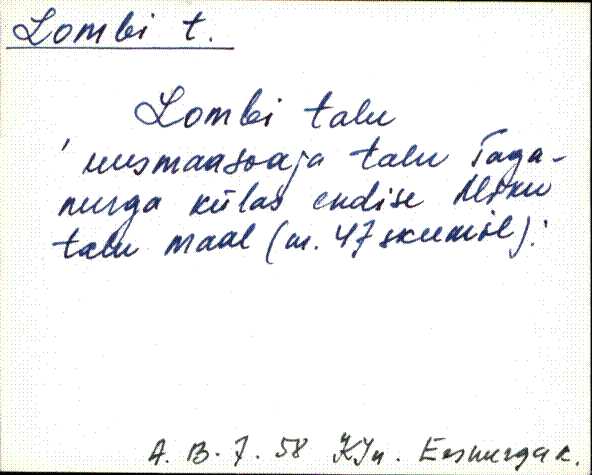 Lombi t.
Lombi talu
' uusmaasaaja talu Taga-
nurga külas endise
talu maal (nr. 47 skeemil).
A. B. 7. 58 KJn. Eesnurga k.